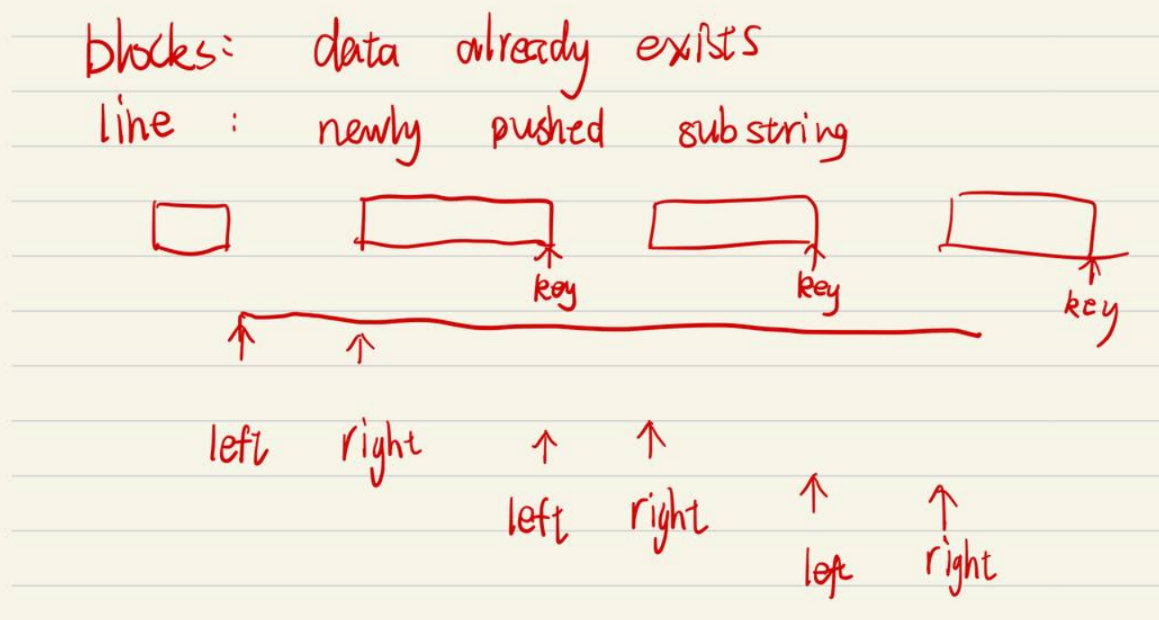 blocks: data already exists
line : newly pushed substring
key key key
left right
left right
left right